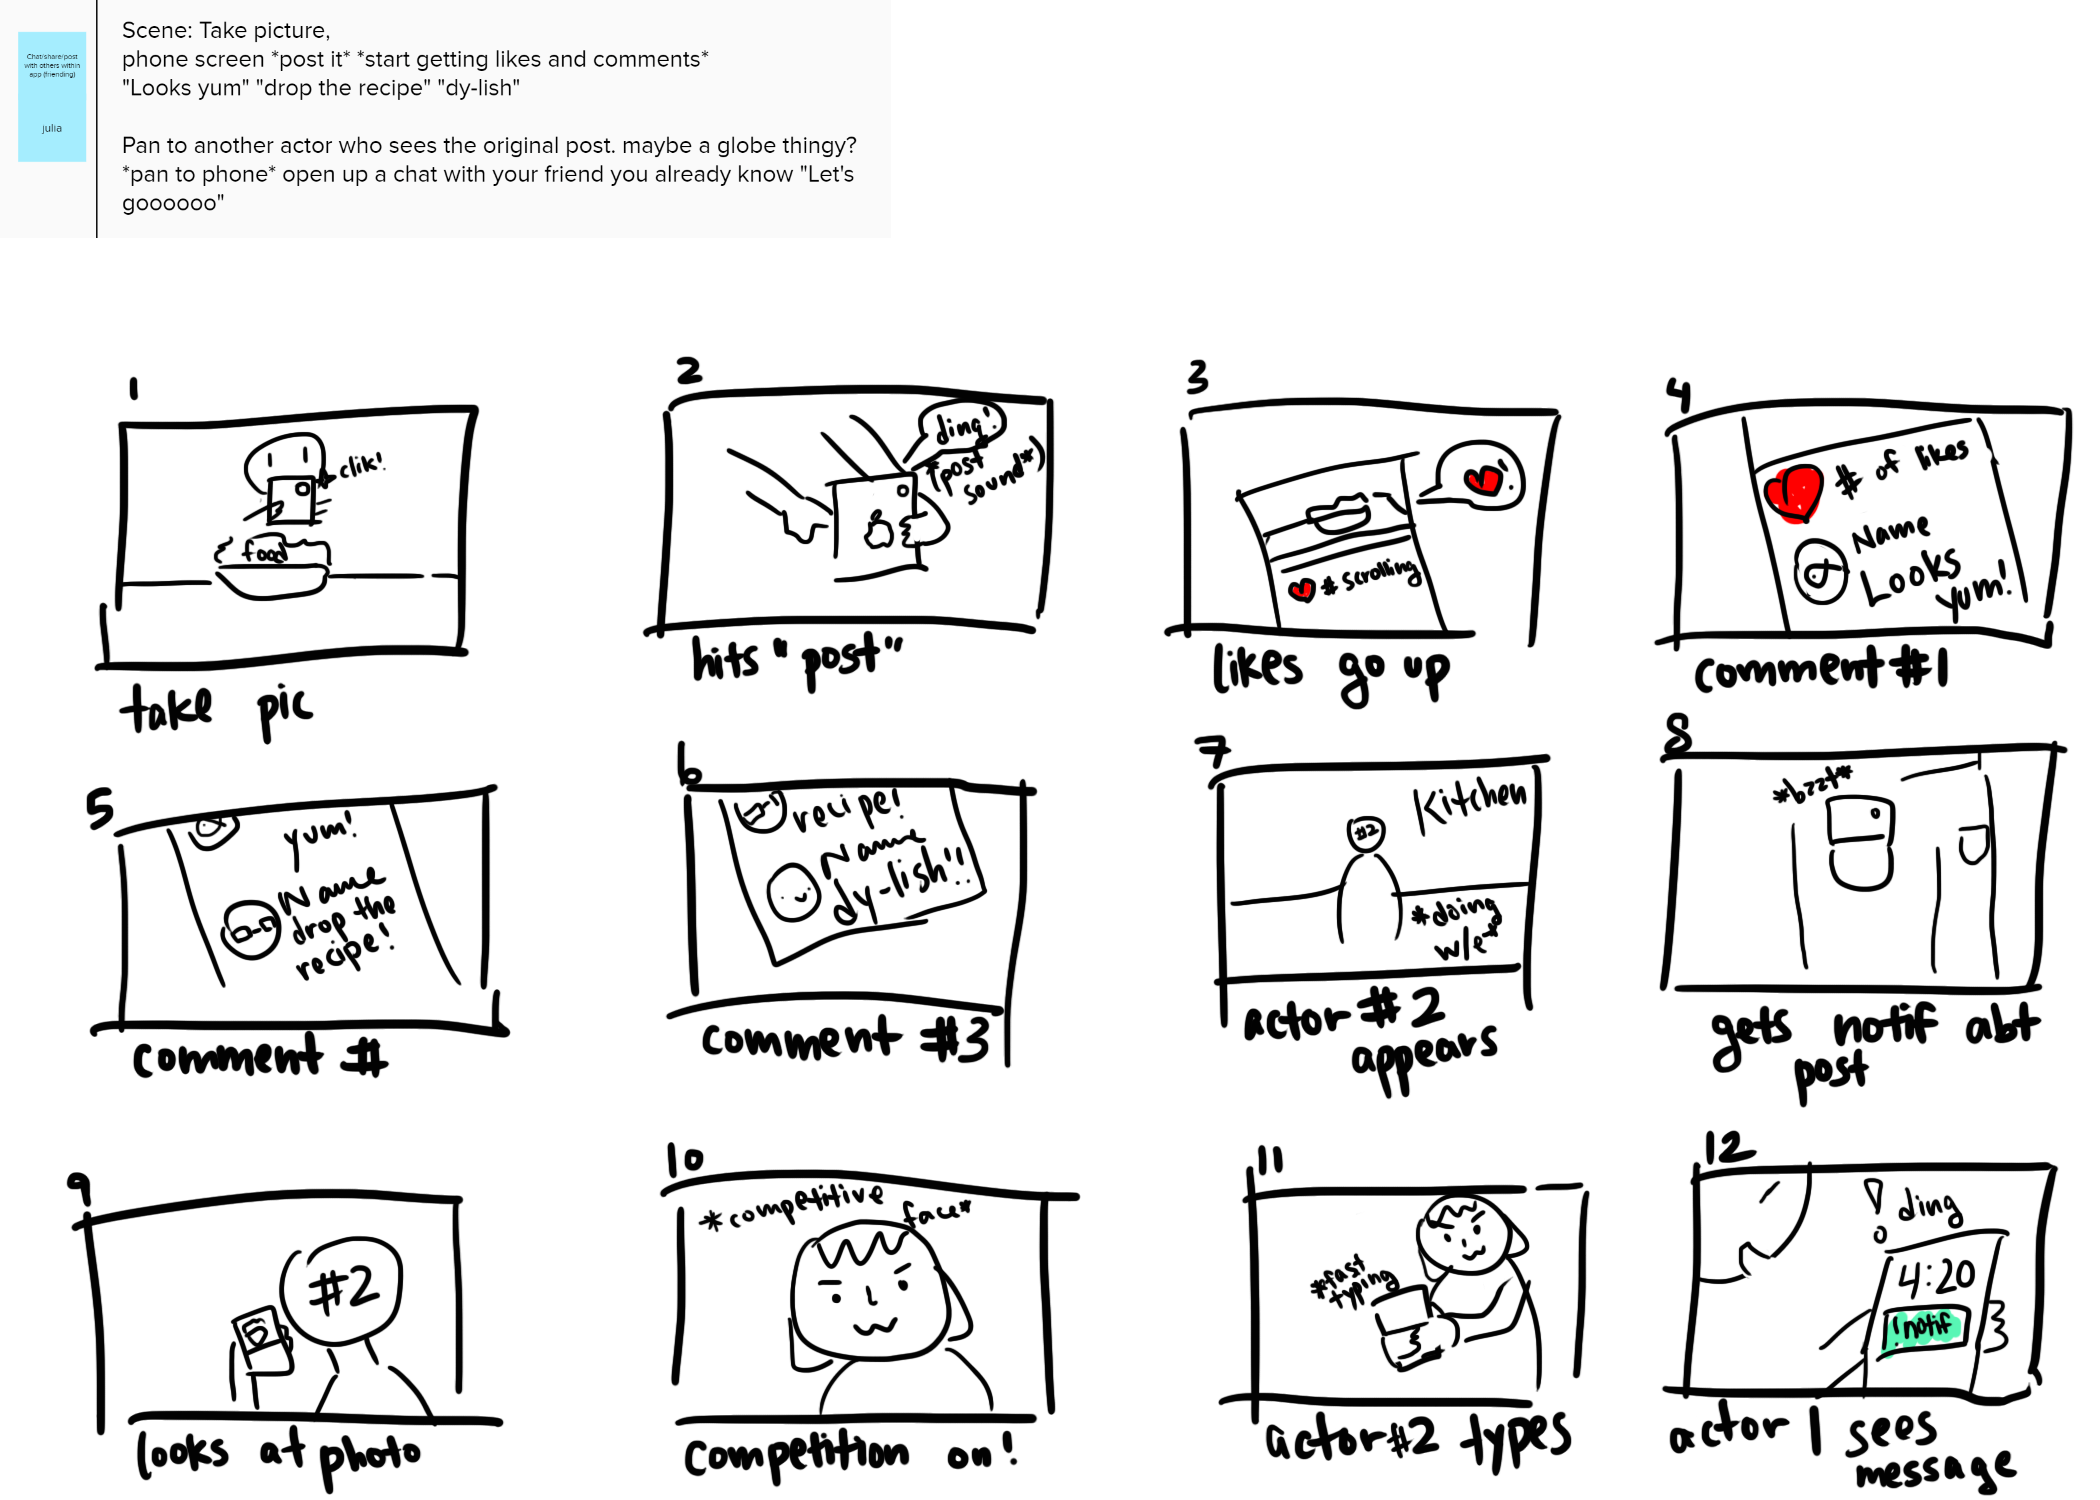 Chat/share/post
with others within
app (friending)
julia
Scene: Take picture,
phone screen *post it* *start getting likes and comments*
"Looks yum" "drop the recipe" "dy-lish"
Pan to another actor who sees the original post. maybe a globe thingy?
*pan to phone* open up a chat with your friend you already know "Let's
goooooo"
1
clik!
food
take pic
2
ding!
*post
sound*)
hits "post"
3
!
# scrolling
likes go up
4
# of likes
Name
Looks
yum!
comment #1
5
yum!
Name
drop the
recipe!
comment #
6
recipe!
Name
dy-lish!!
comment #3
7
Kitchen
#2
*doing
w/e*
actor #2
appears
8
*bzzt*
gets notif abt
post
9
#2
looks at photo
10
*competitive
face*
competition on!
11
*fast
typing
actor #2 types
12
! ding
4:20
!notif
actor 1 sees
message